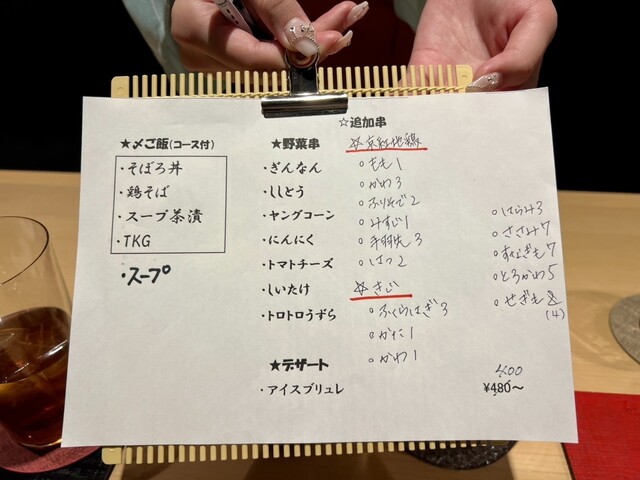 ★〆ご飯(コース付)
・そぼろ丼
・鶏そば
・スープ茶漬
・TKG
・スープ
★野菜串
・ぎんなん
・ししとう
・ヤングコーン
・にんにく
・トマトチーズ
・しいたけ
・トロトロうずら
★デザート
・アイスブリュレ
☆追加串
☆京紅地鶏
○もも1
○かわ3
○ふりそで2
○みすじ1
○手羽先3
○はつ2
☆きじ
○ふくらはぎ3
○かた1
○かわ1
○はらみ3
○ささみ7
○すなぎも7
○とろかわ5
○せぎも8
(4)
¥480～